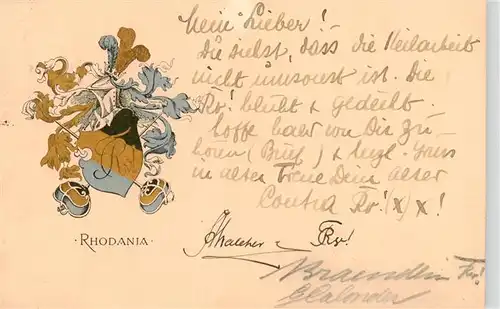 Mein Lieber! –
Du siehst, dass die Keilarbeit
nicht umsonst ist. Die
Rv! blüht & gedeiht
hoffe bald von Dir zu
hören (Brief) & herzl. Gruss
in alter Treue Dein alter
Contra Rv! (x) x!
· RHODANIA ·
Rv!